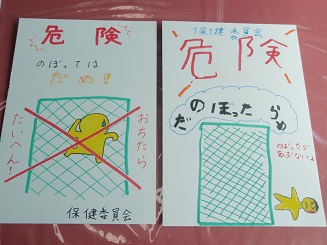 危険
のぼっては
だめ!
おちたら
たいへん!
保健委員会
保健委員会
危険
のぼったら
だめ
のぼったら
あぶないよ